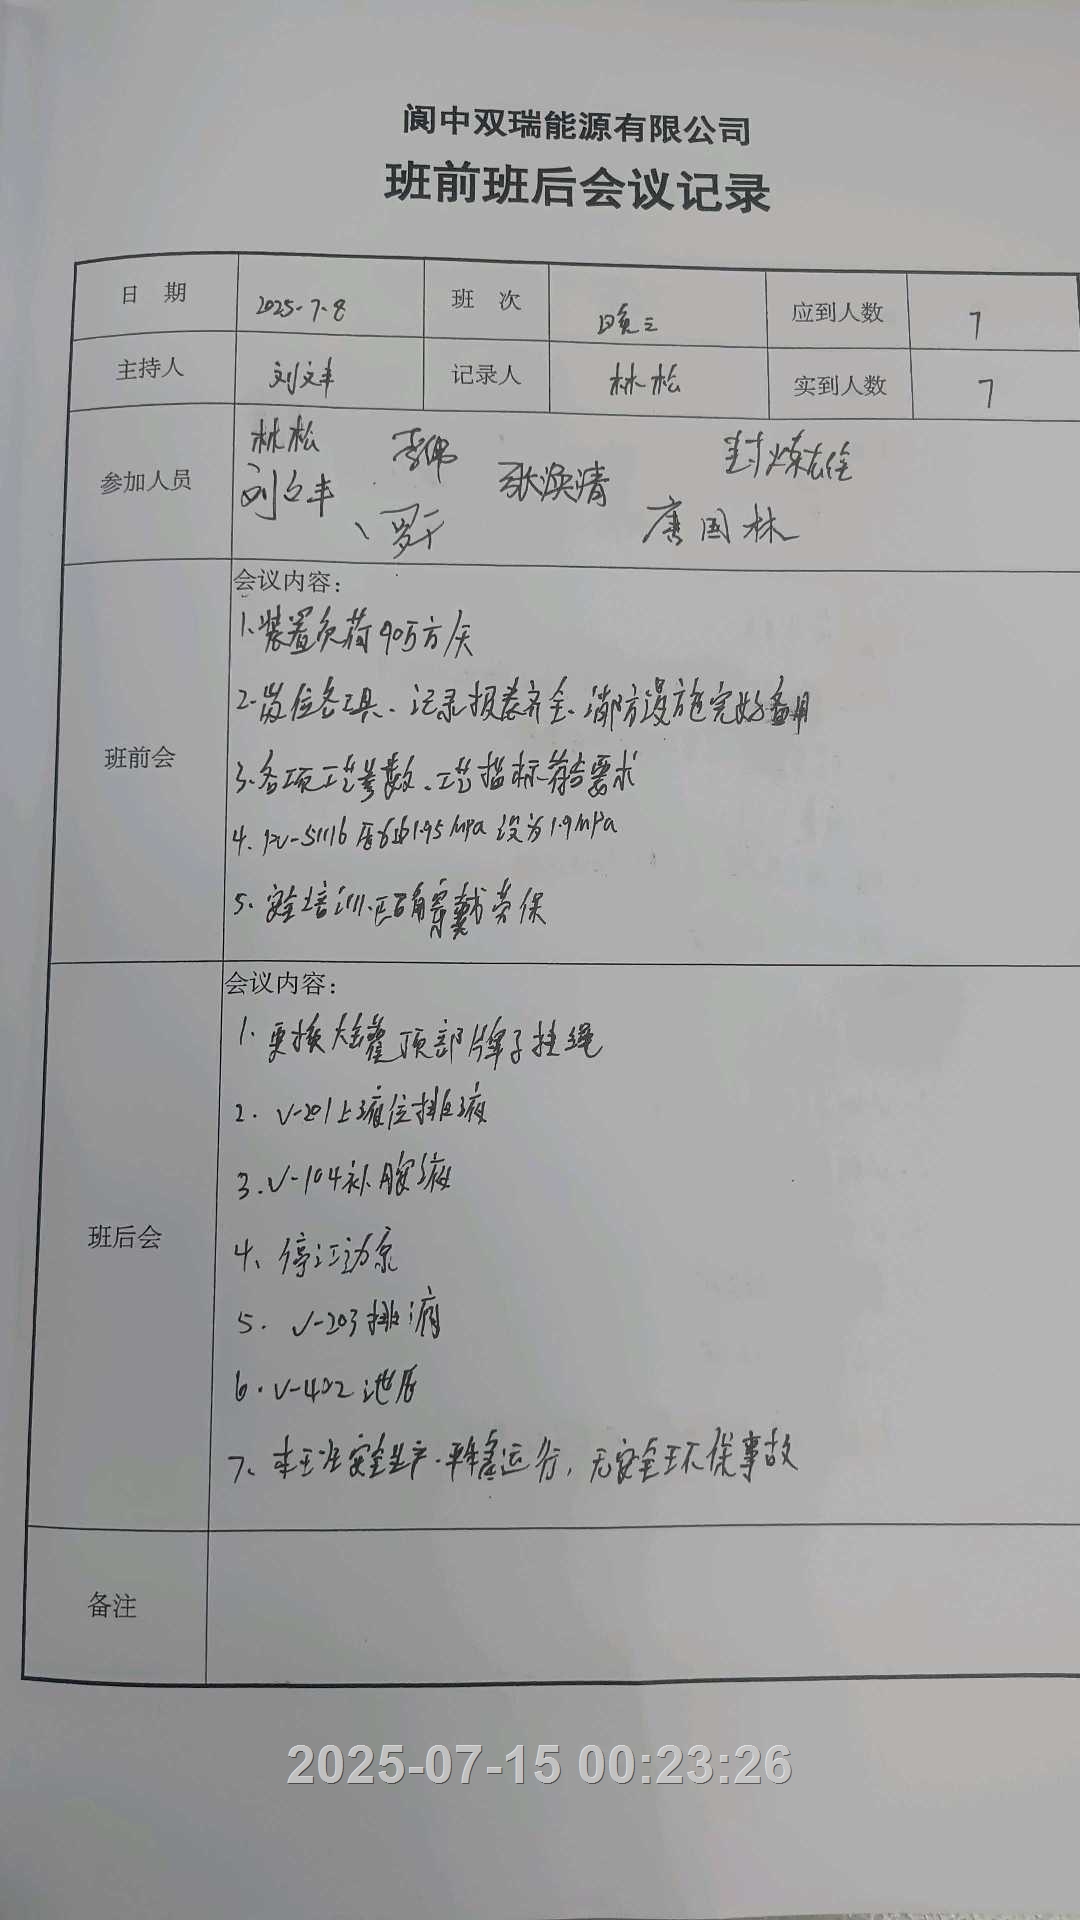 阆中双瑞能源有限公司
班前班后会议记录
日 期 2025-7-8 班 次 应到人数 7
主持人 刘文丰 记录人 林松 实到人数 7
参加人员
林松 李佛 封炼雄
刘文丰 张焕清
罗千 唐国林
班前会
会议内容:
1.装置负荷40万方/天
2.岗位各工具、记录报表齐全、消防设施完好备用
3.各项工艺参数、工艺指标符合要求
4.PV-51116 1.95MPa 设为1.9MPa
5.安全培训.正确穿戴劳保
班后会
会议内容:
1.更换大罐顶部牌子挂绳
2.V-201上液位排液
3.V-104补胺液
4、停活动泵
5.V-203排液
6.V-402泄压
7、本班安全生产.平稳运行,无安全环保事故
备注
2025-07-15 00:23:26